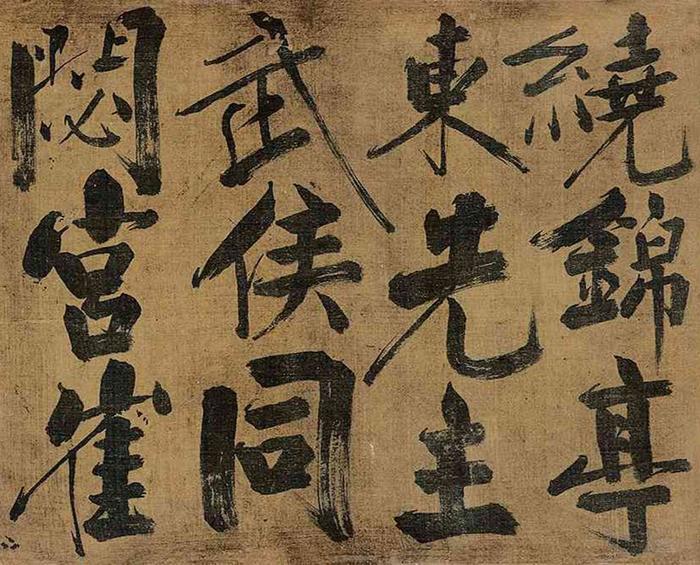 繞錦亭
東先主
武侯同
閟宮崔